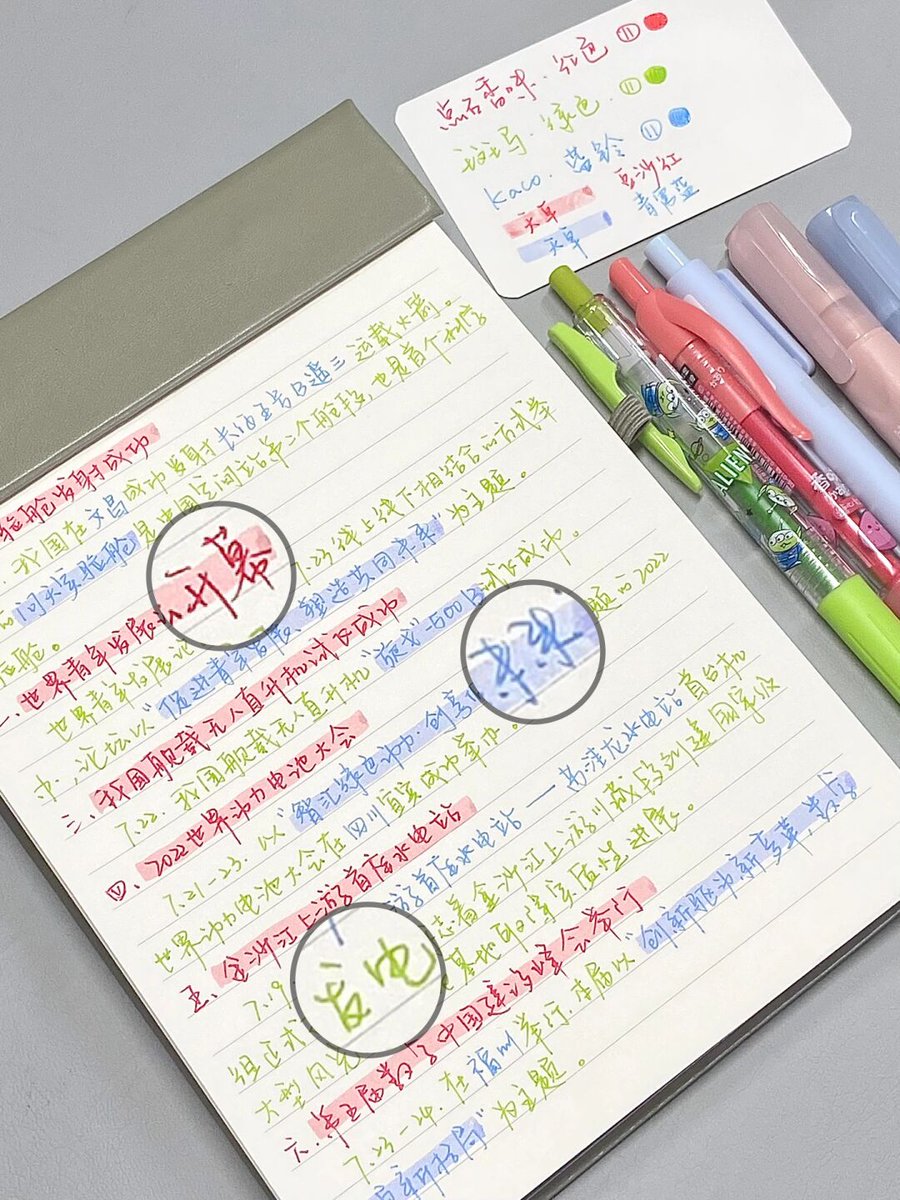 点石香味·红色
斑马·绿色
kaco·蓝铃
天草 豆沙红
天草
验舱发射成功
我国在文昌成功发射长征五号B遥三运载火箭。
问天实验舱是中国空间站第二个舱段,也是首个科学
验舱。
二、世界青年发展论坛开幕
世界青年发展论 7.23线上线下相结合的方式举
中,论坛以“促进青年发展、塑造共同未来”为主题。
三、我国舰载无人直升机试飞成功
7.22. 我国舰载无人直升机“ -500B 试飞成功。
四、2022世界动力电池大会
7.21-23. 以“智汇绿色动力·创享 未来 题的2022
世界动力电池大会在四川宜宾成功举办。
五、金沙江上游首座水电站
7.19 游首座水电站——苏洼龙水电站首台机
组正式 发电 志着金沙江上游川藏段列建国家级
大型风光 基地取得实质性进展。
六、第五届数字中国建设峰会举行
7.23-24. 在福州举行. 本届以“创新驱动新变革,数字
新格局”为主题。
ALIEN